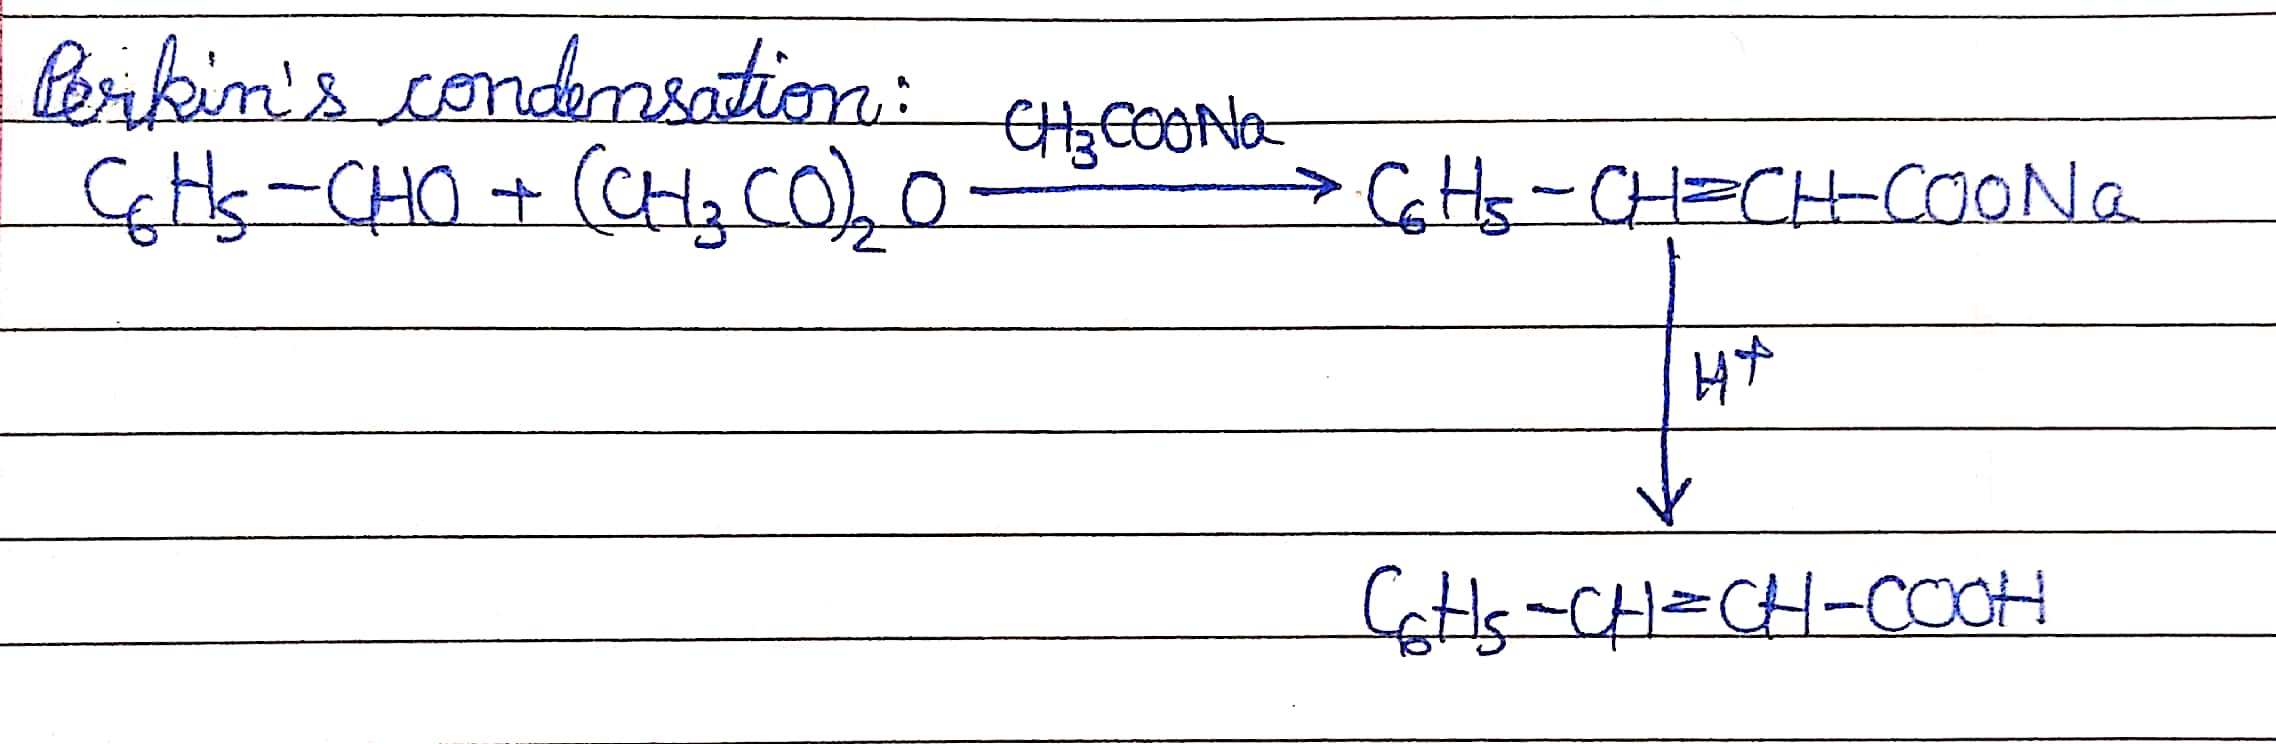 Perkin's condensation:
CH₃COONa
C₆H₅-CHO + (CH₃CO)₂O → C₆H₅-CH=CH-COONa
↓ H⁺
C₆H₅-CH=CH-COOH